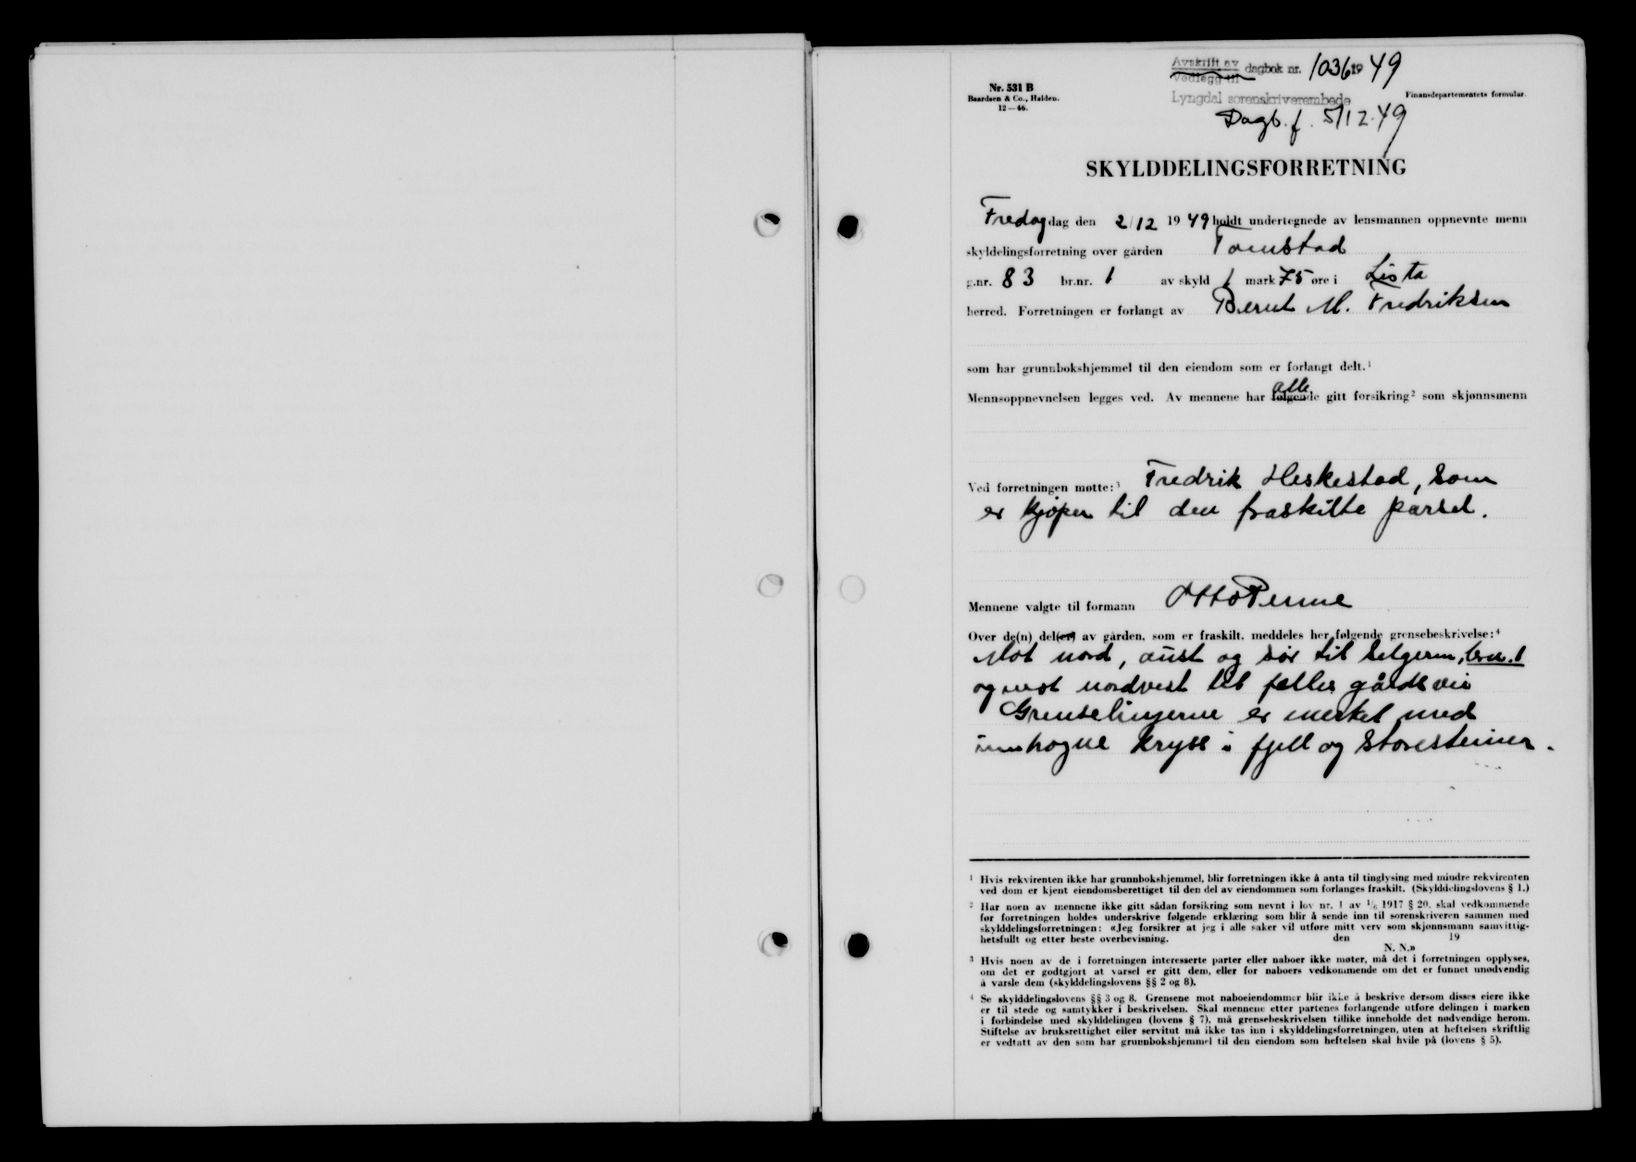 Avskrift av
Vedlegg til dagbok nr. 1036 19 49
Lyngdal sorenskriverembede
Dagb. f. 5/12-49
Nr. 531 B
Baardsen & Co., Halden.
12—46.
Finansdepartementets formular.
SKYLDDELINGSFORRETNING
Fredag dag den 2/12 1949 holdt undertegnede av lensmannen oppnevnte menn
skylddelingsforretning over gården Tomstad
g.nr. 83 br.nr. 1 av skyld 1 mark 75 øre i Lista
herred. Forretningen er forlangt av Bernt M. Fredriksen
som har grunnbokshjemmel til den eiendom som er forlangt delt.¹
Mennsoppnevnelsen legges ved. Av mennene har følgende alle gitt forsikring² som skjønnsmenn
Ved forretningen møtte:³ Fredrik Heskestad, som
er kjøper til den fraskilte parsel.
Mennene valgte til formann Otto Penne
Over de(n) del(er) av gården, som er fraskilt, meddeles her følgende grensebeskrivelse:⁴
Mot nord, aust og sør til selgeren, bru. 1
og mot nordvest til felles gårdsvei
Grenselinjerne er merket med
innhogne kryss i fjell og storesteiner.
¹ Hvis rekvirenten ikke har grunnbokshjemmel, blir forretningen ikke å anta til tinglysing med mindre rekvirenten
ved dom er kjent eiendomsberettiget til den del av eiendommen som forlanges fraskilt. (Skylddelingslovens § 1.)
² Har noen av mennene ikke gitt sådan forsikring som nevnt i lov nr. 1 av 1/6 1917 § 20, skal vedkommende
før forretningen holdes underskrive følgende erklæring som blir å sende inn til sorenskriveren sammen med
skylddelingsforretningen: «Jeg forsikrer at jeg i alle saker vil utføre mitt verv som skjønnsmann samvittig-
hetsfullt og etter beste overbevisning. den 19
N. N.»
³ Hvis noen av de i forretningen interesserte parter eller naboer ikke møter, må det i forretningen opplyses,
om det er godtgjort at varsel er gitt dem, eller for naboers vedkommende om det er funnet unødvendig
å varsle dem (skylddelingslovens §§ 2 og 8).
⁴ Se skylddelingslovens §§ 3 og 8. Grensene mot naboeiendommer blir ikke å beskrive dersom disses eiere ikke
er til stede og samtykker i beskrivelsen. Skal mennene etter partenes forlangende utføre delingen i marken
i forbindelse med skylddelingen (lovens § 7), må grensebeskrivelsen tillike inneholde det nødvendige herom.
Stiftelse av bruksrettighet eller servitut må ikke tas inn i skylddelingsforretningen, uten at heftelsen skriftlig
er vedtatt av den som har grunnbokshjemmel til den eiendom som heftelsen skal hvile på (lovens § 5).